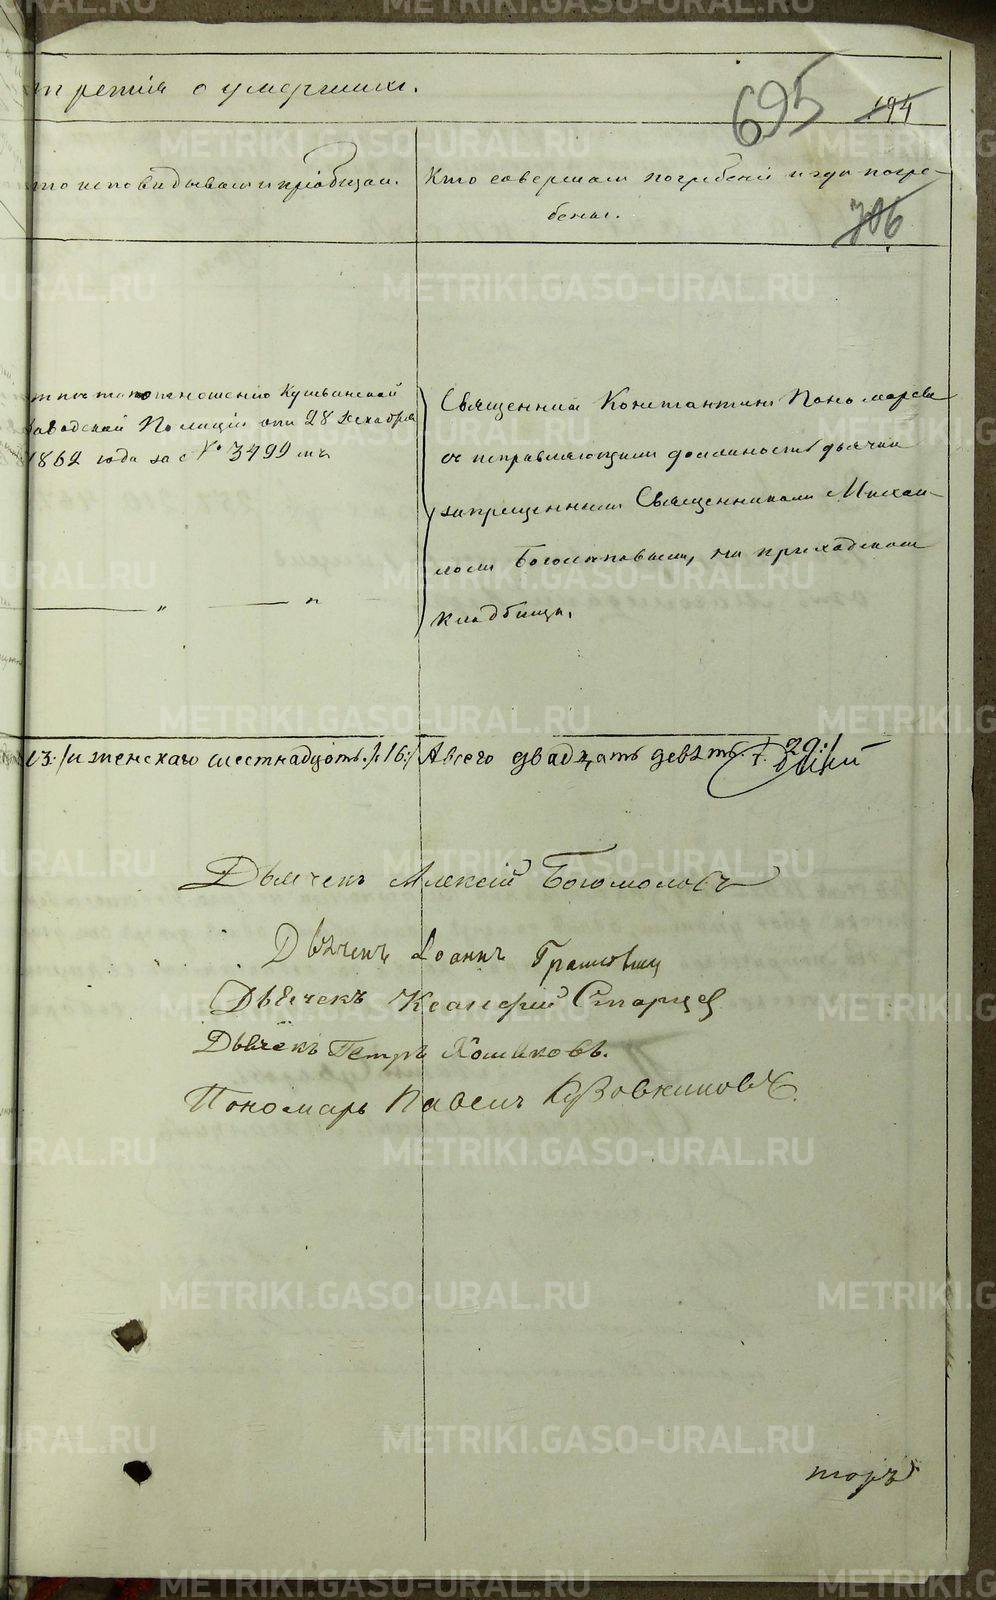 третія о умершихъ.
695
194
то исповѣдывалъ и пріобщал.
Кто совершалъ погребеніе и гдѣ погре-
бены.
706
по отношенію Кушвинской
Заводской Полиціи отъ 28 Декабря
1862 года за № 3499 мъ
Священникъ Константинъ Пономаревъ
съ исправляющимъ должность дьячка
запрещеннымъ Священникомъ Михаи-
ломъ Богословскимъ, на приходскомъ
кладбищѣ.
— „ — „
13:/ и женскаго шестнадцать /: 16:/ А всего двадцать девять. /: 29:/
Дьячекъ Алексій Богомоловъ
Дьячекъ Іоаннъ
Дьячекъ Ксанфій Старцев
Дьячекъ Петръ Хомяковъ.
Пономарь Павелъ Кузовниковъ.
METRIKI.GASO-URAL.RU